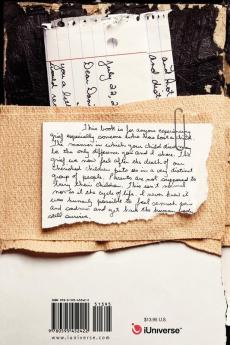 and Hol
and dist
July 22, 2
Dear Dea
you a let
This book is for anyone experiencing
grief especially someone who has lost a child.
The manner in which your child died may
be the only difference you and I share. The
grief we now feel after the death of our
cherished children puts us in a very distinct
group of people. Parents are not supposed to
bury their children. This isn't normal
nor is it the cycle of life. I never knew it
was humanly possible to feel so much pain
and sadness and yet have the human body
still survive.
51395
$13.95 U.S.
iUniverse
www.iuniverse.com